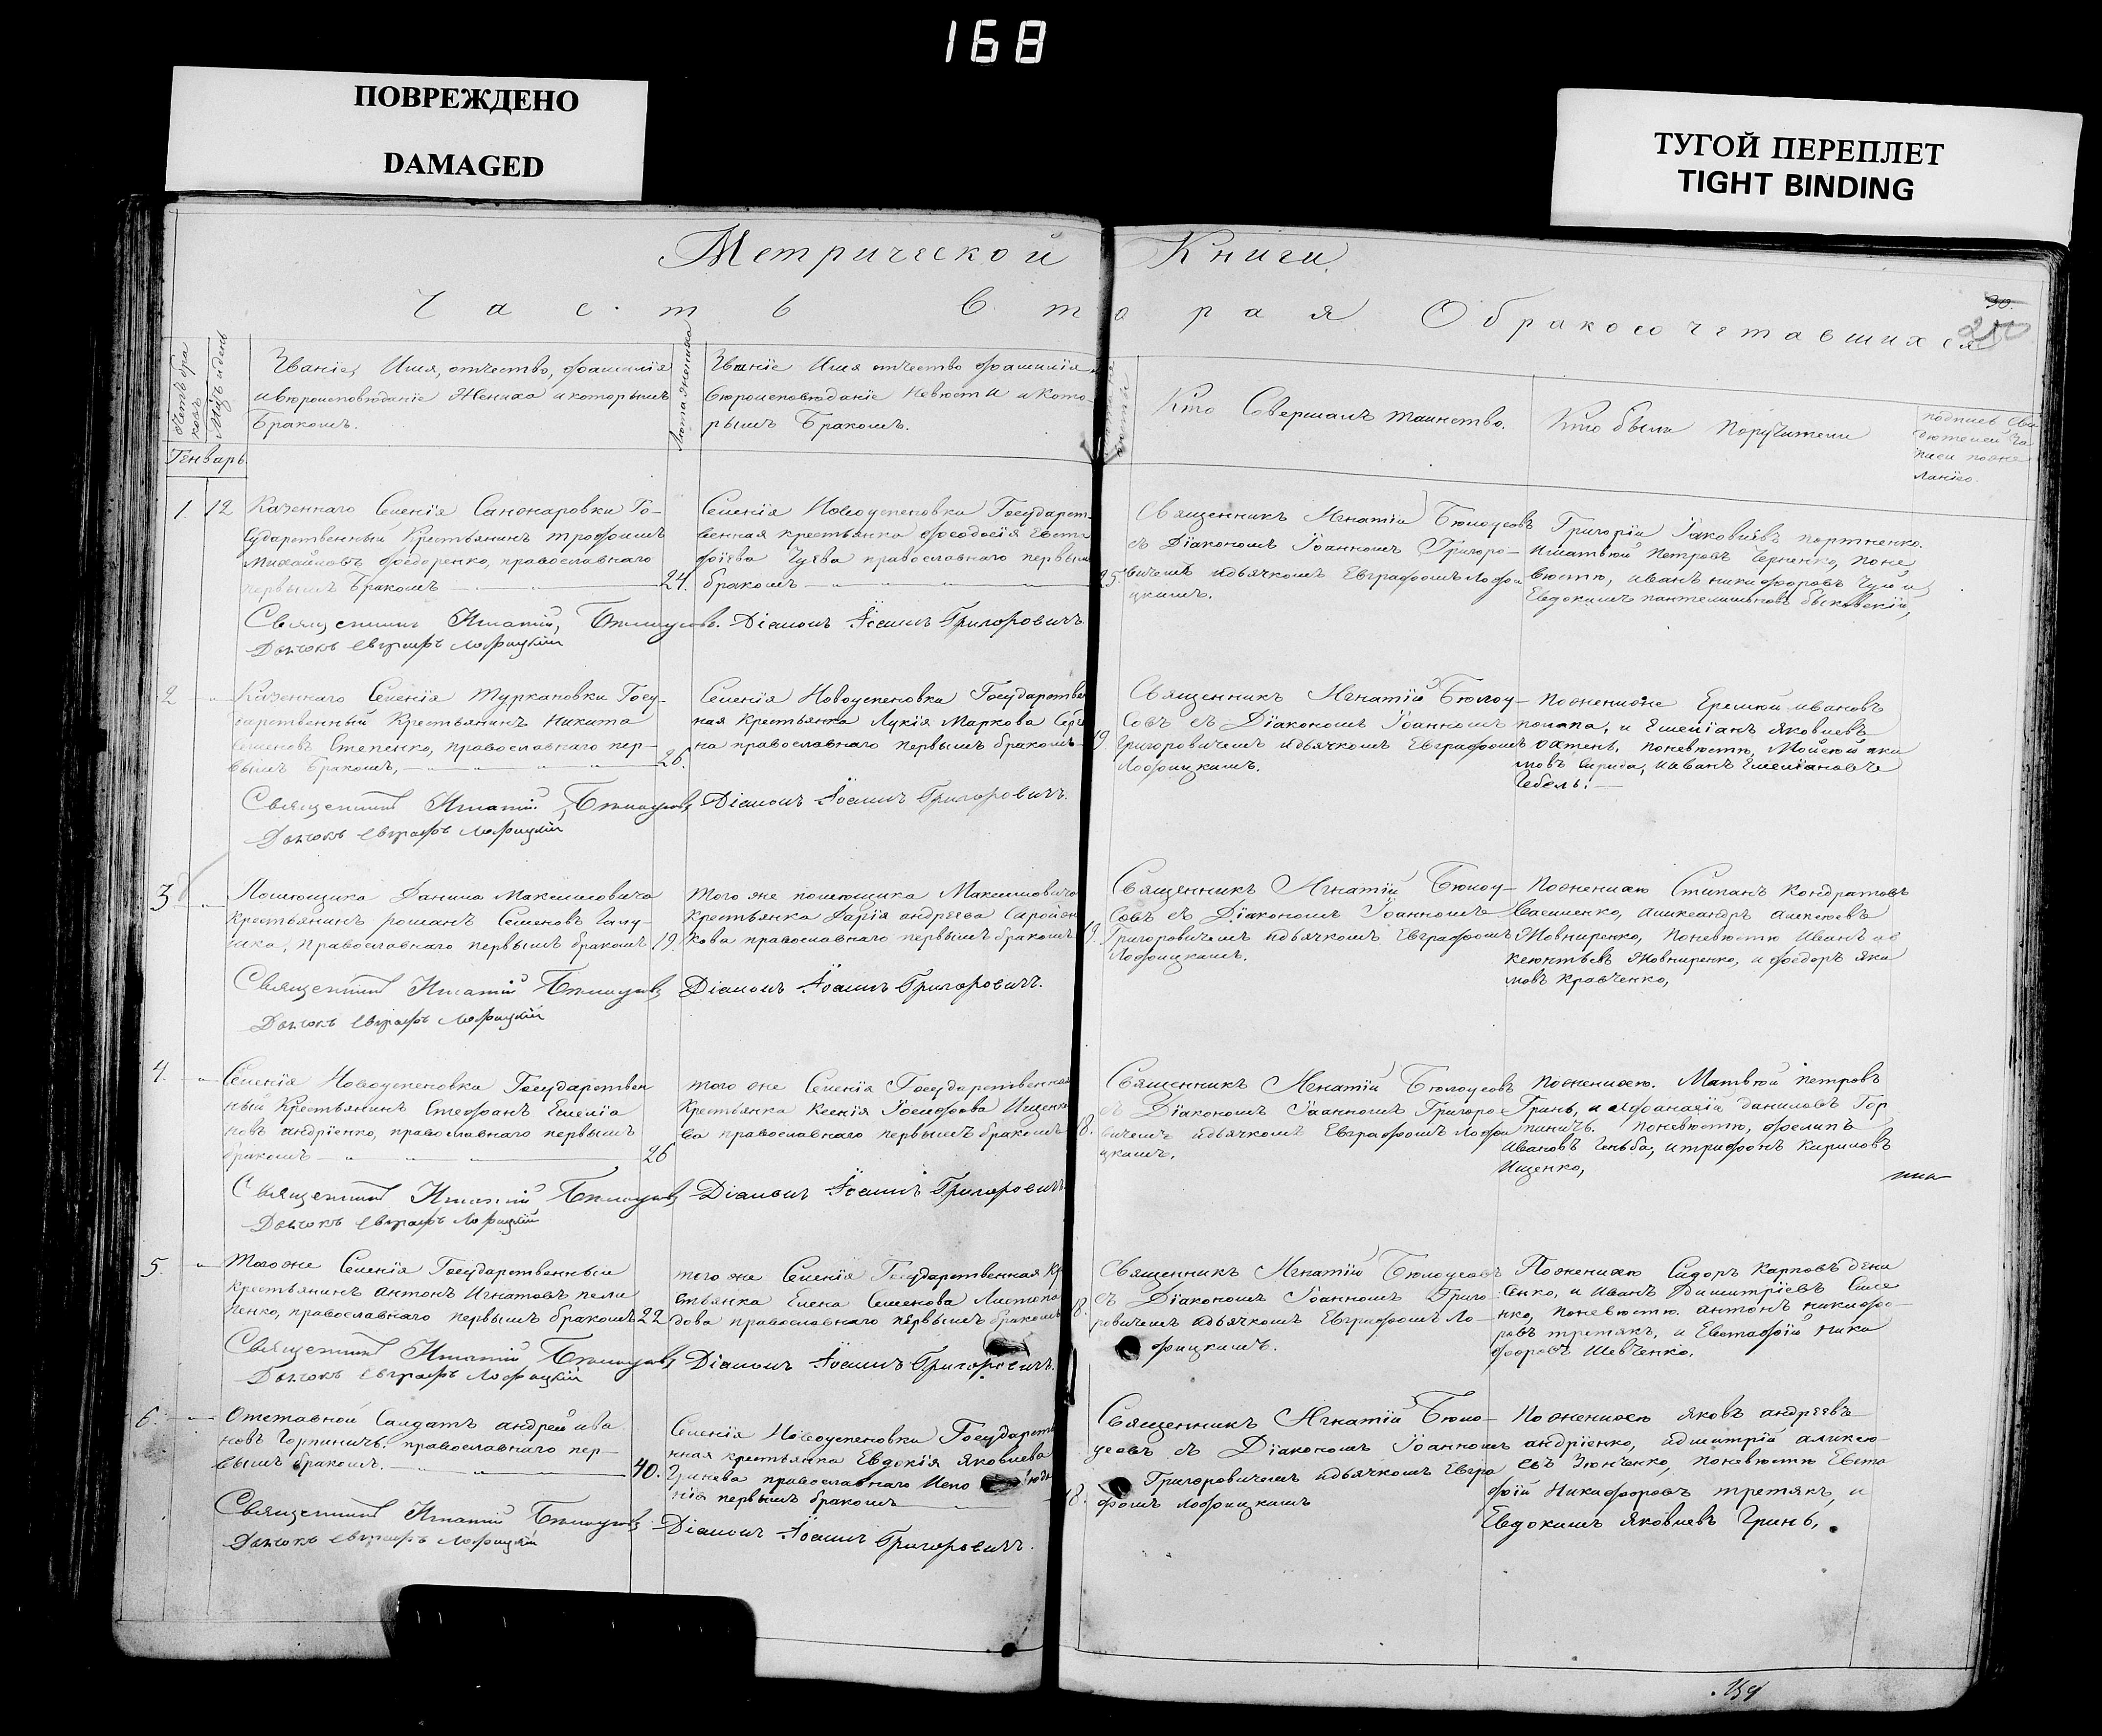 168
ПОВРЕЖДЕНО
DAMAGED
ТУГОЙ ПЕРЕПЛЕТ
TIGHT BINDING
Метрической Книги
Часть вторая О бракосочетавшихся
30.
Званіе, Имя, отчество, фамилія
ивѣроисповѣданіе Жениха икоторымъ
Бракомъ.
Лѣта жениха
Званіе Имя отчество фамилія
вѣроисповѣданіе Невѣсты икото-
рымъ Бракомъ.
Кто Совершалъ таинство.
Кто были Поручители
подпись Сви
дѣтелей За
писи поже
ланію.
Генварь.
1. 12
Казеннаго Селенія Санжаровки Го-
сударственный Крестьянинъ трофимъ
Михайловъ федоренко, православнаго
первымъ Бракомъ
24.
Селенія Новоуспеновки Государст-
венная крестьянка феодосія Евста
фіева Чуева православнаго первым
бракомъ
25
Священникъ Игнатій Бѣлоусовъ
съ Діакономъ Іоанномъ Григоро-
вичемъ идьячкомъ Евграфомъ Лофи
цкимъ.
Григорій Іаковлевъ портненко.
Иматвѣй Петровъ Черненко, поне
вѣстѣ, иванъ никифоровъ Чуй и
Евдокимъ пантелимоновъ быковскій,
Священникъ Игнатій Бѣлоусовъ. Діаконъ Іоаннъ Григоровичъ
Дьячокъ Евграфъ Лофицкій
2
Казеннаго Селенія Туркановки Госу-
дарственный Крестьянинъ Никита
Семеновъ Степенко, православнаго пер-
вымъ Бракомъ,
26.
Селенія Новоуспеновки Государствен
ная Крестьянка Лукія Маркова
на православнаго первымъ бракомъ
19.
Священникъ Игнатій Бѣлоу-
совъ съ Діакономъ Іоанномъ
Григоровичемъ идьячкомъ Евграфомъ
Лофицкимъ.
Поженихѣ Еремѣй ивановъ
и Емеліанъ Яковлевъ
поневѣстѣ, Мойсей яки
мовъ Сирида, ииванъ Емеліановъ
Чебель.
Священникъ Игнатій Бѣлоусовъ Діаконъ Іоаннъ Григоровичъ.
Дьячокъ Евграфъ Лофицкій
3
Помѣщика Данила Максимовича
Крестьянинъ романъ Семеновъ Галу-
шка, православнаго первымъ бракомъ
19.
Того же помѣщика Максимовича
Крестьянка Дарія андреева
кова православнаго первымъ бракомъ
19.
Священникъ Игнатій Бѣлоу-
совъ съ Діакономъ Іоанномъ
Григоровичемъ идьячкомъ Евграфомъ
Лофицкимъ.
Поженихѣ Стипанъ Кондратовъ
Василенко, александръ алексѣевъ
Жовниренко, поневѣстѣ Иванъ
Жовниренко, и федоръ яки
мовъ кравченко,
Священникъ Игнатій Бѣлоусовъ Діаконъ Іоаннъ Григоровичъ.
Дьячокъ Евграфъ Лофицкій
4.
Селенія Новоуспеновки Государствен
ный Крестьянинъ Стефанъ Емелія
новъ андріенко, православнаго первымъ
бракомъ
26
того же Селенія Государственная
Крестьянка Ксенія Іосифова Ищенко
ва православнаго первымъ бракомъ
18.
Священникъ Игнатій Бѣлоусовъ
съ Діакономъ Іоанномъ Григоро
вичемъ идьячкомъ Евграфомъ Лофи
цкимъ.
Поженихѣ. Матвѣй петровъ
Гринь, и афанасій даниловъ Гор
пиничъ. поневѣстѣ, филипъ
Ивановъ Геньба, итрифонъ Кириловъ
Ищенко,
Священникъ Игнатій Бѣлоусовъ Діаконъ Іоаннъ Григоровичъ
Дьячокъ Евграфъ Лофицкій
5.
Тогоже Селенія Государственный
Крестьянинъ антонъ Игнатовъ пели
пенко, православнаго первымъ бракомъ
22
того же Селенія Государственная Кр
стьянка Елена Семенова Листопа
дова православнаго первымъ бракомъ
18.
Священникъ Игнатій Бѣлоусовъ
съ Діакономъ Іоанномъ Григо
ровичемъ идьячкомъ Евграфомъ Ло-
фицкимъ.
Поженихѣ Сидоръ Карповъ дени
сенко, и Иванъ Димитріевъ Симе
нко, поневѣстѣ. антонъ никифо-
ровъ третякъ, и Евстафій ники
форовъ Шевченко.
Священникъ Игнатій Бѣлоусовъ Діаконъ Іоаннъ Григоровичъ.
Дьячокъ Евграфъ Лофицкій
6.
Отставной Салдатъ андрей ива
новъ Горпиничъ. православнаго пер-
вымъ бракомъ.
40.
Селенія Новоуспеновки Государств
нная крестьянка Евдокія Яковлева
Гринева православнаго Испо
нія первымъ бракомъ
18.
Священникъ Игнатій Бѣло-
усовъ съ Діакономъ Іоанномъ
Григоровичемъ идьячкомъ Евгра
фомъ Лофицкимъ
Поженихѣ яковъ андреевъ
андріенко, идмитрій алексѣ-
евъ Зюнченко, поневѣстѣ Евста
фій Никифоровъ третякъ, и
Евдокимъ яковлевъ Гринь,
Священникъ Игнатій Бѣлоусовъ Діаконъ Іоаннъ Григоровичъ.
Дьячокъ Евграфъ Лофицкій